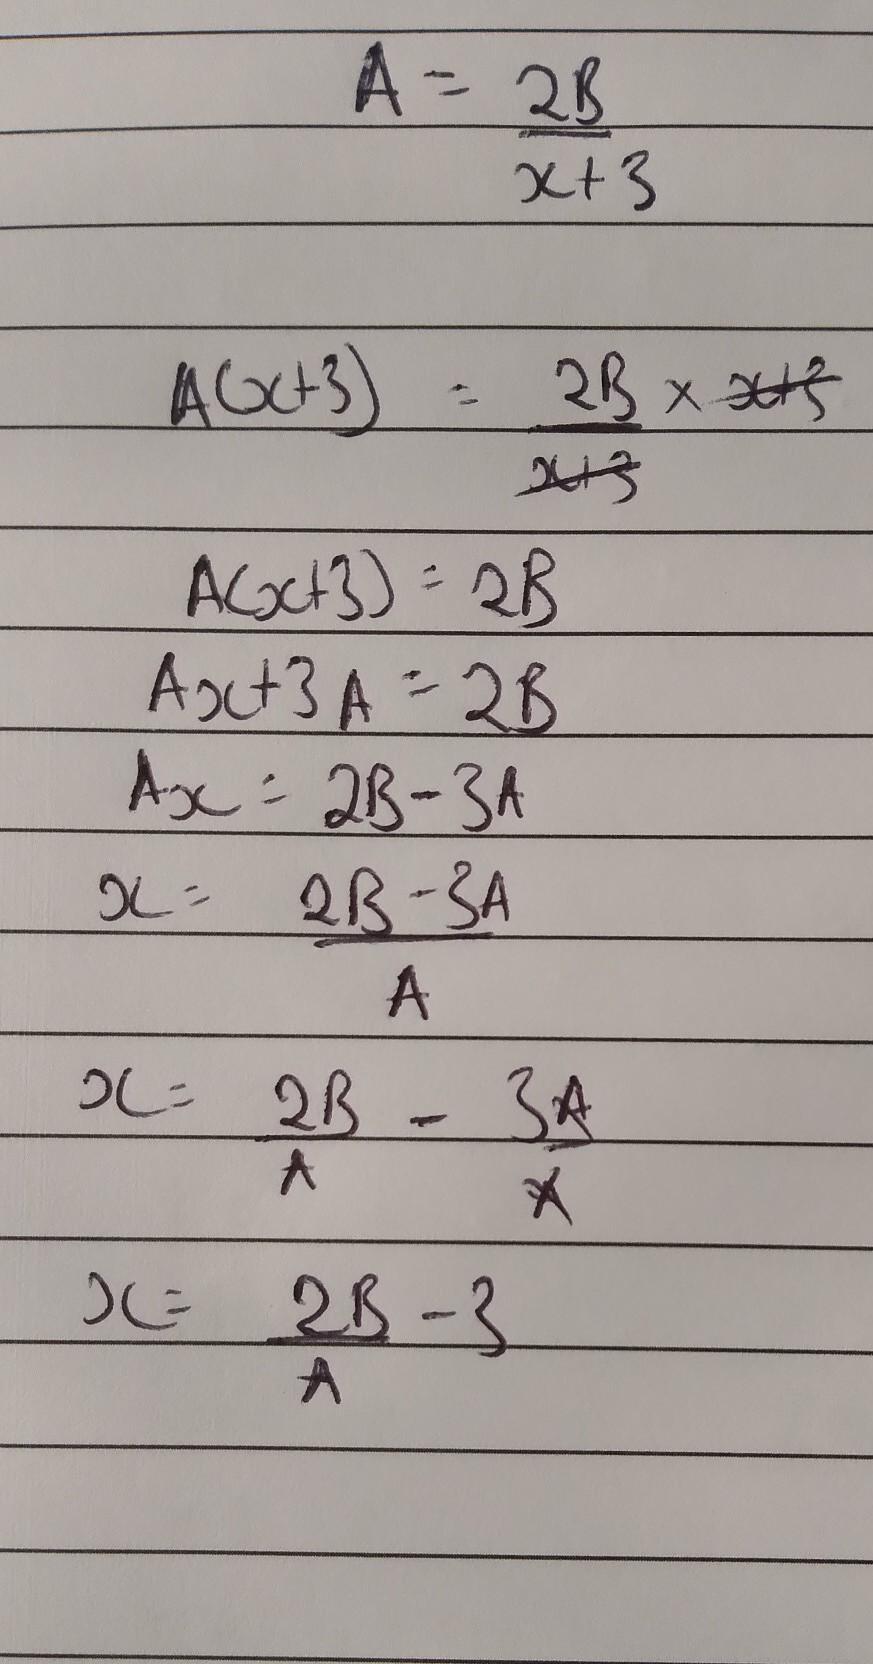 A = 2B
x+3
A(x+3) = 2B × x+3
x+3
A(x+3) = 2B
Ax+3A = 2B
Ax = 2B-3A
x = 2B-3A
A
x = 2B - 3A
A A
x = 2B - 3
A